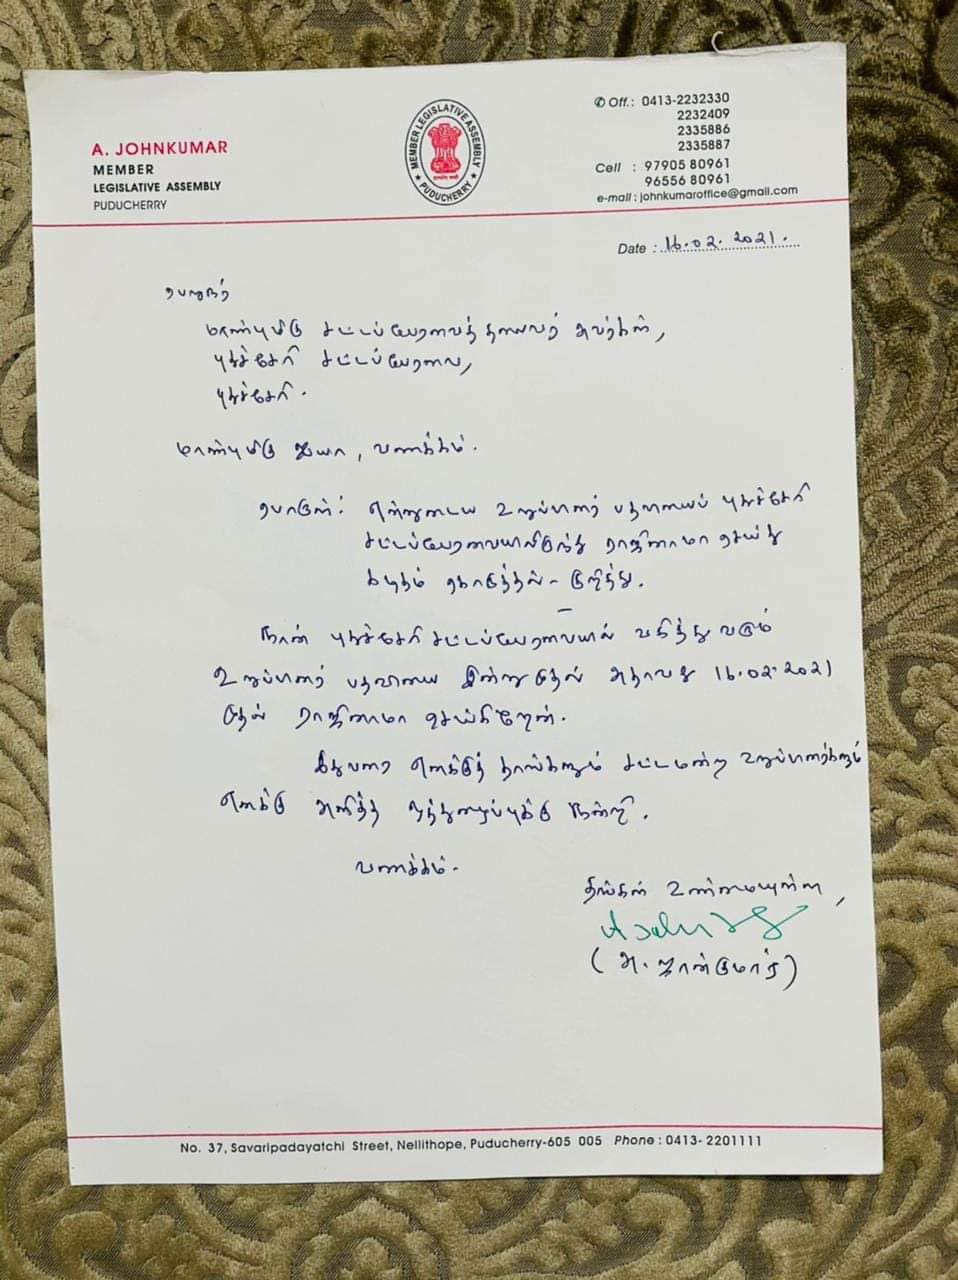 A. JOHNKUMAR
MEMBER
LEGISLATIVE ASSEMBLY
PUDUCHERRY
MEMBER LEGISLATIVE ASSEMBLY
PUDUCHERRY
✆ Off.: 0413-2232330
2232409
2335886
2335887
Cell : 97905 80961
96556 80961
e-mail : johnkumaroffice@gmail.com
Date : 16.02.2021.
பெறுநர்
மாண்புமிகு சட்டப்பேரவைத் தலைவர் அவர்கள்,
புதுச்சேரி சட்டப்பேரவை,
புதுச்சேரி.
மாண்புமிகு ஐயா, வணக்கம்.
பொருள்: என்னுடைய உறுப்பினர் பதவியைப் புதுச்சேரி
சட்டப்பேரவையிலிருந்து ராஜினாமா செய்து
கடிதம் கொடுத்தல் - குறித்து.
நான் புதுச்சேரி சட்டப்பேரவையில் வகித்து வரும்
உறுப்பினர் பதவியை இன்று முதல் அதாவது 16.02.2021
முதல் ராஜினாமா செய்கிறேன்.
இதுவரை எனக்குத் தாங்களும் சட்டமன்ற உறுப்பினர்களும்
எனக்கு அளித்த ஒத்துழைப்புக்கு நன்றி.
வணக்கம்.
தங்கள் உண்மையுள்ள,
(அ. ஜான்குமார்)
No. 37, Savaripadayatchi Street, Nellithope, Puducherry-605 005 Phone : 0413- 2201111